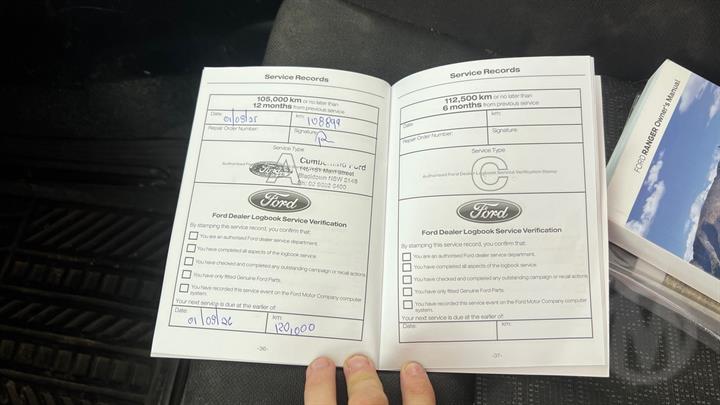 Service Records
105,000 km or no later than
12 months from previous service
Date: 01/09/25
km: 108899
Repair Order Number:
Signature:
Service Type
A
Authorised Ford
Ford
Cumberland Ford
140-151 Main Street
Blacktown NSW 2148
Ford
Ford Dealer Logbook Service Verification
By stamping this service record, you confirm that:
You are an authorised Ford dealer service department.
You have completed all aspects of the logbook service.
You have checked and completed any outstanding campaign or recall actions.
You have only fitted Genuine Ford Parts.
You have recorded this service event on the Ford Motor Company computer
system.
Your next service is due at the earlier of:
Date: 01/09/26
km: 120,000
-36-
Service Records
112,500 km or no later than
6 months from previous service
Date:
km:
Repair Order Number:
Signature:
Service Type
C
Authorised Ford Dealer Logbook Service Verification Stamp
Ford
Ford Dealer Logbook Service Verification
By stamping this service record, you confirm that:
You are an authorised Ford dealer service department.
You have completed all aspects of the logbook service.
You have checked and completed any outstanding campaign or recall actions.
You have only fitted Genuine Ford Parts.
You have recorded this service event on the Ford Motor Company computer
system.
Your next service is due at the earlier of:
Date:
km:
-37-
FORD RANGER Owner's Manual